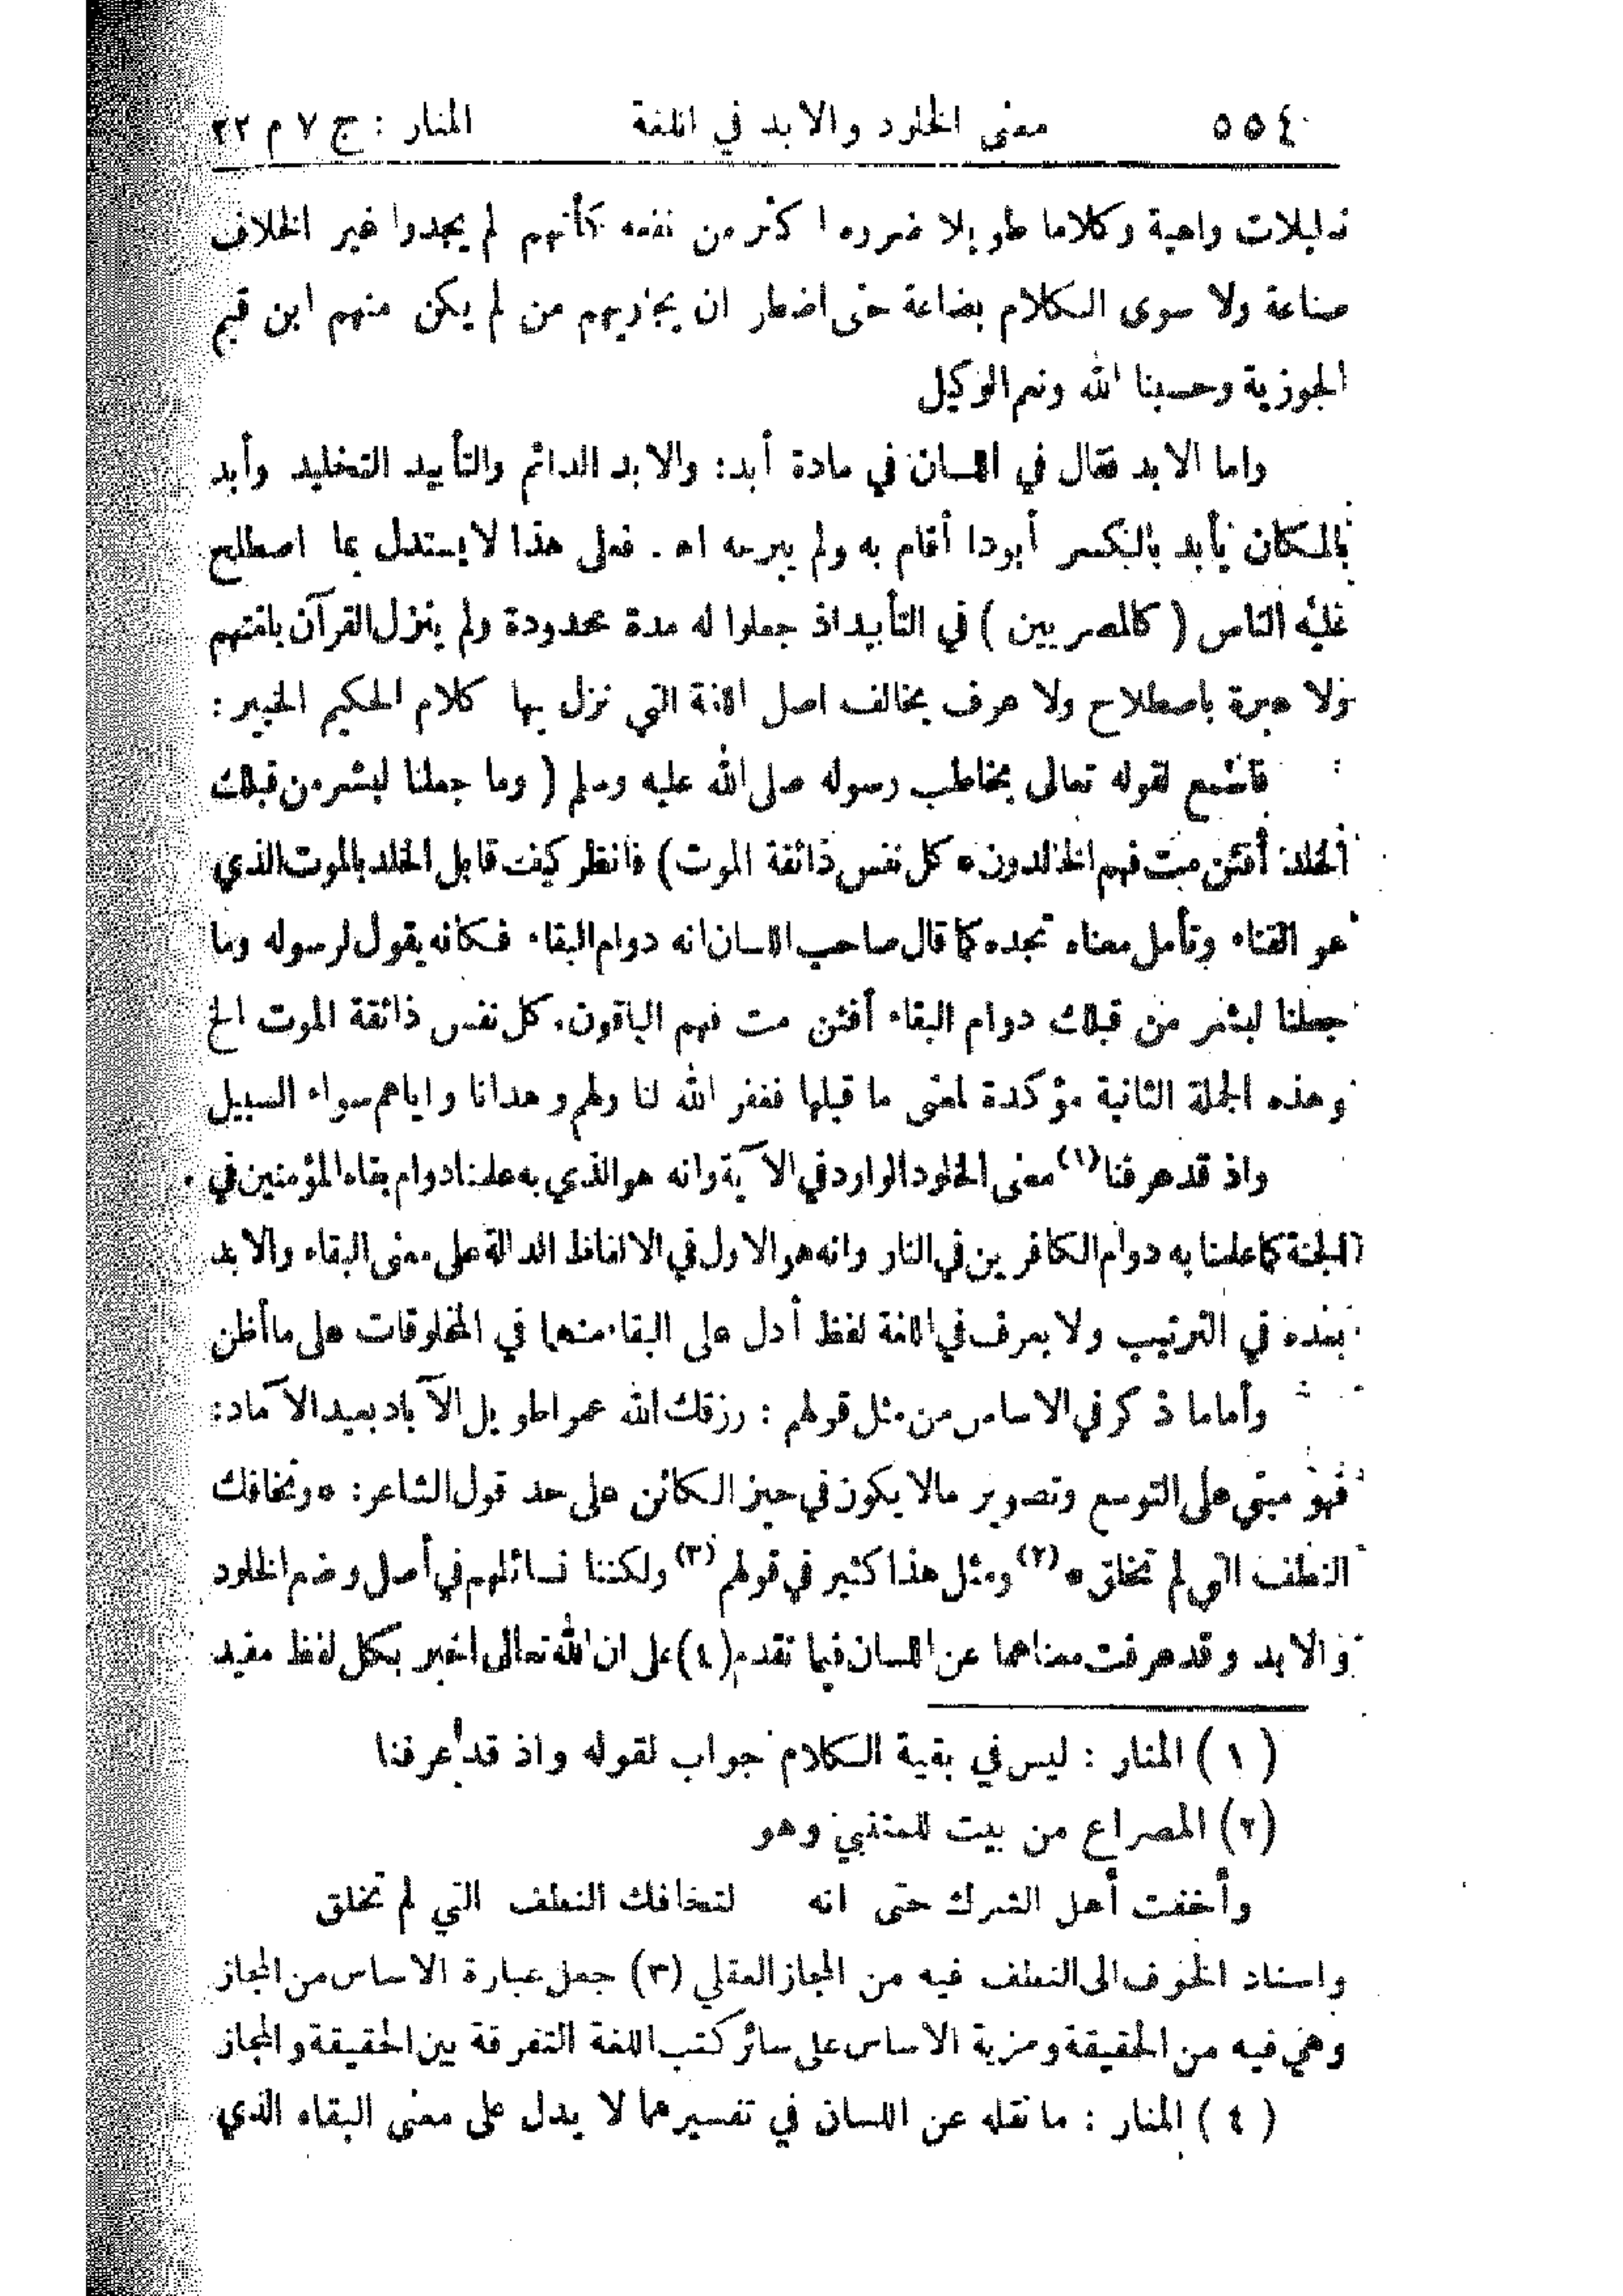 ٥٥٤ معنى الخلود والابد في اللغة المنار : ج ٧ م ٢٢
تدليلات واهية وكلاما طويلا ضرره اكثر من نفعه كأنهم لم يجدوا غير الخلاف
صناعة ولا سوى الكلام بضاعة حتى اضطر ان يجاريهم من لم يكن منهم ابن قيم
الجوزية وحسبنا الله ونعم الوكيل
واما الابد فقال في اللسان في مادة أبد: والابد الدائم والتأبيد التخليد وأبد
بالمكان يأبد بالكسر أبودا أقام به ولم يبرحه اه . فعلى هذا لا يستدل بما اصطلح
عليه الناس ( كالمصريين ) في التأبيد اذ جعلوا له مدة محدودة ولم ينزل القرآن بلغتهم
ولا عبرة باصطلاح ولا عرف يخالف اصل اللغة التي نزل بها كلام الحكيم الخبير :
فاسمع لقوله تعالى يخاطب رسوله صلى الله عليه وسلم ( وما جعلنا لبشر من قبلك
الخلد أفئن مت فهم الخالدون * كل نفس ذائقة الموت ) فانظر كيف قابل الخلد بالموت الذي
هو الفناء وتأمل معناه تجده كما قال صاحب اللسان انه دوام البقاء فكأنه يقول لرسوله وما
جعلنا لبشر من قبلك دوام البقاء أفئن مت فهم الباقون. كل نفس ذائقة الموت الخ
وهذه الجملة الثانية مؤكدة لمعنى ما قبلها فغفر الله لنا ولهم وهدانا واياهم سواء السبيل
واذ قد عرفنا (١) معنى الخلود الوارد في الآية وانه هو الذي به علمنا دوام بقاء المؤمنين في
الجنة كما علمنا به دوام الكافرين في النار وانه هو الاول في الالفاظ الدالة على معنى البقاء والابد
بعده في الترتيب ولا يعرف في اللغة لفظ أدل على البقاء منهما في المخلوقات على ما أظن
وأما ما ذكر في الاساس من مثل قولهم : رزقك الله عمرا طويل الآباد بعيد الآماد:
فهو مبني على التوسع وتصوير ما لا يكون في حيز الكائن على حد قول الشاعر: * وتخافك
النطف التي لم تخلق * (٢) ومثل هذا كثير في قولهم (٣) ولكننا نسائلهم في أصل وضع الخلود
والابد وقد عرفت معناهما عن اللسان فيما تقدم (٤) على ان الله تعالى أخبر بكل لفظ مفيد
( ١ ) المنار : ليس في بقية الكلام جواب لقوله واذ قد عرفنا
(٢) المصراع من بيت للمتنبي وهو
وأخفت أهل الشرك حتى انه لتخافك النطف التي لم تخلق
واسناد الخوف الى النطف فيه من المجاز العقلي (٣) جعل عبارة الاساس من المجاز
وهي فيه من الحقيقة ومزية الاساس على سائر كتب اللغة التفرقة بين الحقيقة والمجاز
( ٤ ) المنار : ما نقله عن اللسان في تفسيرهما لا يدل على معنى البقاء الذي